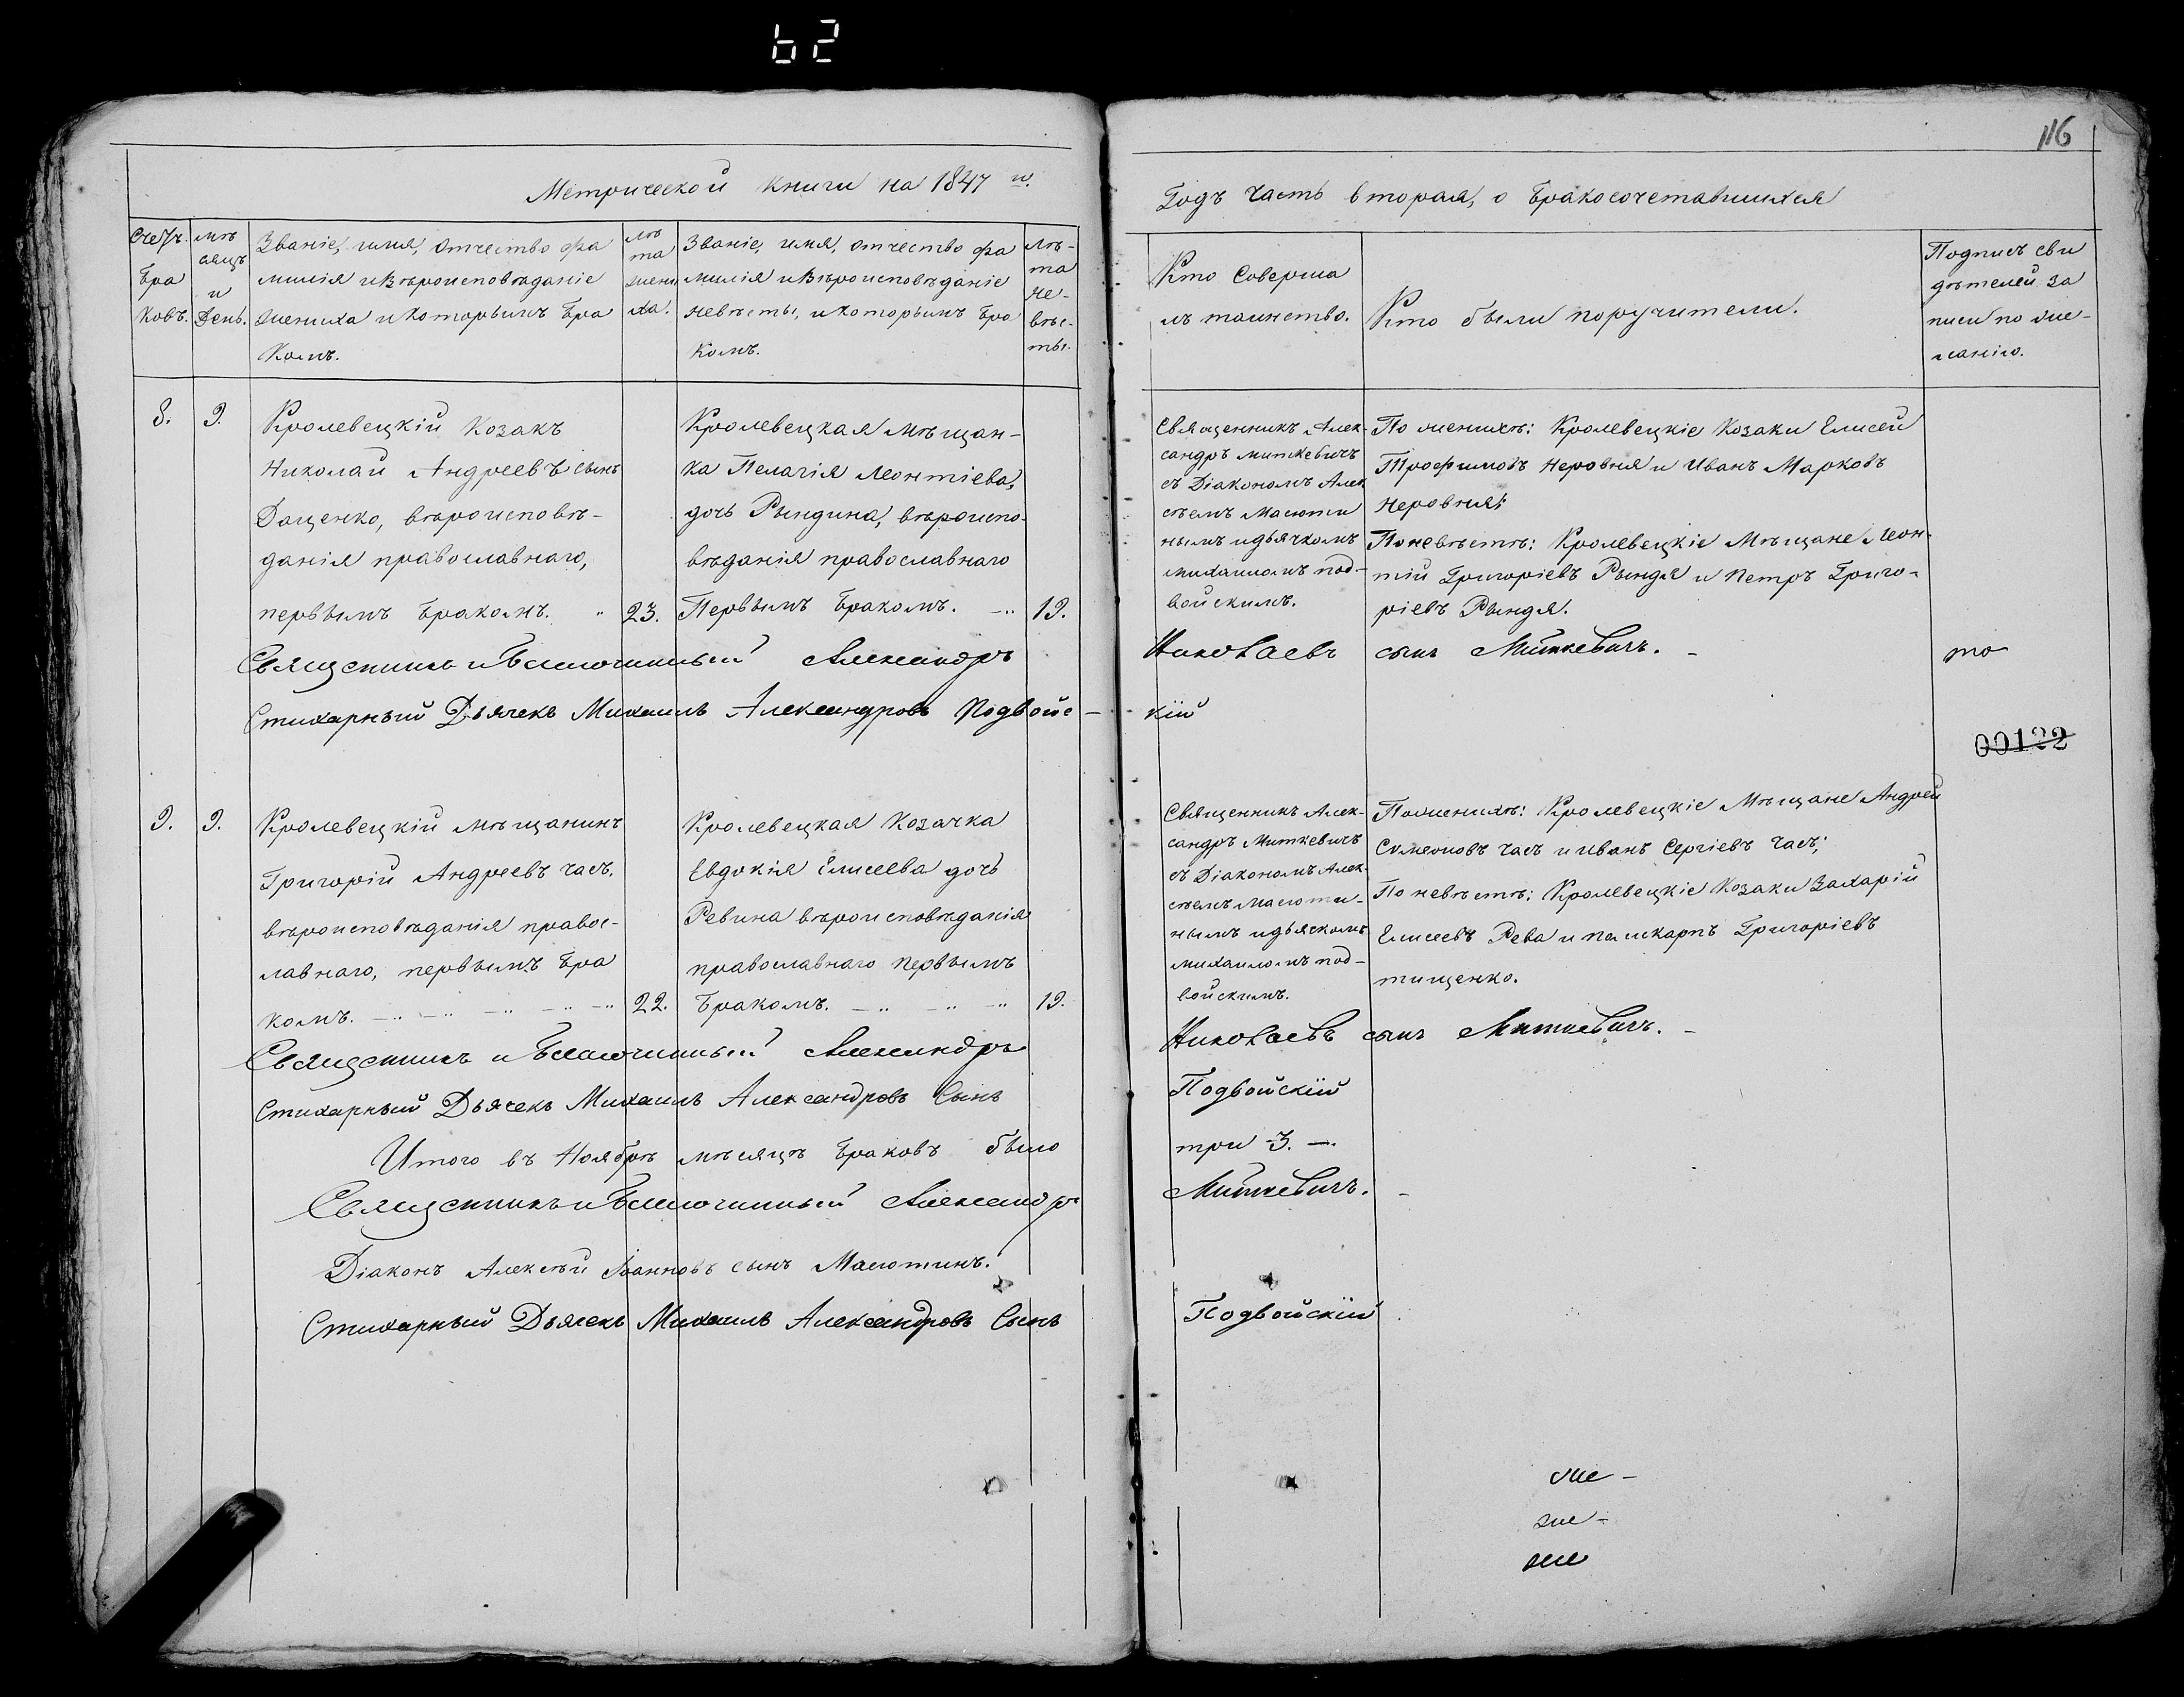 62
116
Метрической книги на 1847 й.
Годъ часть вторая, о бракосочетавшихся
Счетъ
бра
ковъ.
мѣ
сяцъ
и
День.
Званіе, имя, отчество фа
милія и Вѣроисповѣданіе
жениха и которымъ бра
комъ.
лѣ
та
жени
ха.
Званіе, имя, отчество фа
милія и Вѣроисповѣданіе
невѣсты, и которымъ бра
комъ.
лѣ-
та
не-
вѣс-
ты.
Кто Соверша
лъ таинство.
Кто были поручители.
Подпись сви
дѣтелей за
писи по же-
ланію.
8.
9.
Кролевецкій Козакъ
Николай Андреевъ сынъ
Даценко, вѣроисповѣ-
данія православнаго,
первымъ бракомъ.
23.
Кролевецкая мѣщан-
ка Пелагія Леонтіева,
дочь Рындина, вѣроиспо-
вѣданія православнаго
Первымъ бракомъ.
19.
Священникъ Алек-
сандръ Миткевичъ
съ Діакономъ Алек
сѣемъ Масюти
нымъ и дьячкомъ
Михаиломъ под-
войскимъ.
По женихѣ: Кролевецкіе Козаки Елисей
Трофимовъ Неровня и Иванъ Марковъ
Неровня;
По невѣстѣ: Кролевецкіе Мѣщане Леон-
тій Григоріевъ Рындя и Петръ Григо-
ріевъ Рындя.
Священникъ и Благочинный Александръ Николаевъ сынъ Миткевичъ. -
то
Стихарный Дьячекъ Михаилъ Александровъ Подвойс-кій
00122
9.
9.
Кролевецкій мѣщанинъ
Григорій Андреевъ Часъ,
вѣроисповѣданія правос-
лавнаго, первымъ бра
комъ.
22.
Кролевецкая Козачка
Евдокія Елисеева дочь
Ревина вѣроисповѣданія
православнаго первымъ
бракомъ.
19.
Священникъ Алек-
сандръ Миткевичъ
съ Діакономъ Алек-
сѣемъ Масюти-
нымъ и дьячкомъ
Михаиломъ под-
войскимъ.
По женихѣ: Кролевецкіе Мѣщане Андрей
Симеоновъ Часъ и Иванъ Сергіевъ Часъ;
По невѣстѣ: Кролевецкіе Козаки Захарій
Елисеевъ Рева и Поликарпъ Григоріевъ
тищенко.
Священникъ и Благочинный Александръ Николаевъ сынъ Миткевичъ. -
Стихарный Дьячекъ Михаилъ Александровъ Сынъ Подвойскій
Итого въ Ноябрѣ мѣсяцѣ браковъ было три -3. -.
Священникъ и Благочинный Александръ Миткевичъ. -
Діаконъ Алексѣй Іоанновъ сынъ Масютинъ.
Стихарный Дьячекъ Михаилъ Александровъ Сынъ Подвойскій